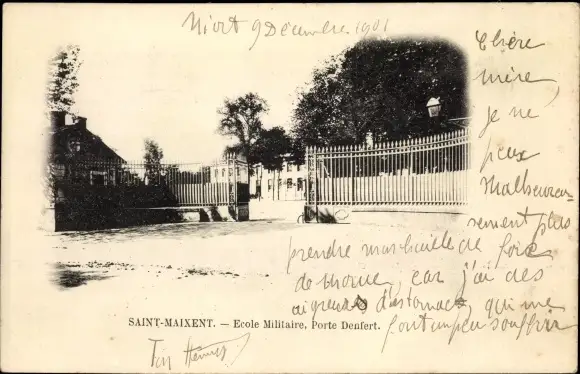 Niort 9 Décembre 1901
Chère
mère
je ne
peux
Malheureu-
sement plus
prendre mon huile de foie
de morue, car j'ai des
aigreurs d'estomac, qui me
font un peu souffrir
SAINT-MAIXENT. — Ecole Militaire, Porte Denfert.
Ton Henri